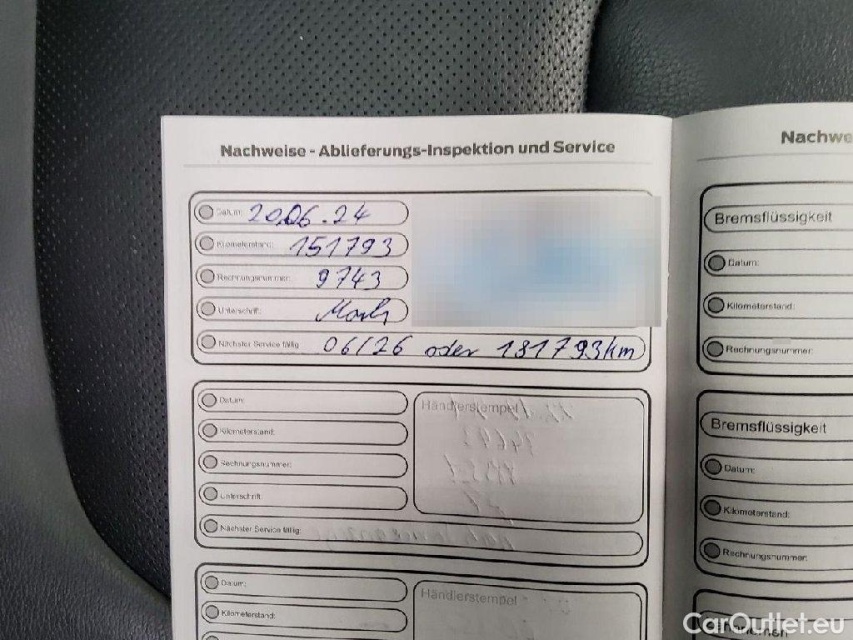 Nachweise - Ablieferungs-Inspektion und Service
Datum: 20.06.24
Kilometerstand: 151793
Rechnungsnummer: 9743
Unterschrift:
Nächster Service fällig: 06/26 oder 181793km
Datum:
Kilometerstand:
Rechnungsnummer:
Unterschrift:
Nächster Service fällig:
Händlerstempel
Datum:
Kilometerstand:
Händlerstempel
Nachwe
Bremsflüssigkeit
Datum:
Kilometerstand:
Rechnungsnummer:
Bremsflüssigkeit
Datum:
Kilometerstand:
Rechnungsnummer:
CarOutlet.eu